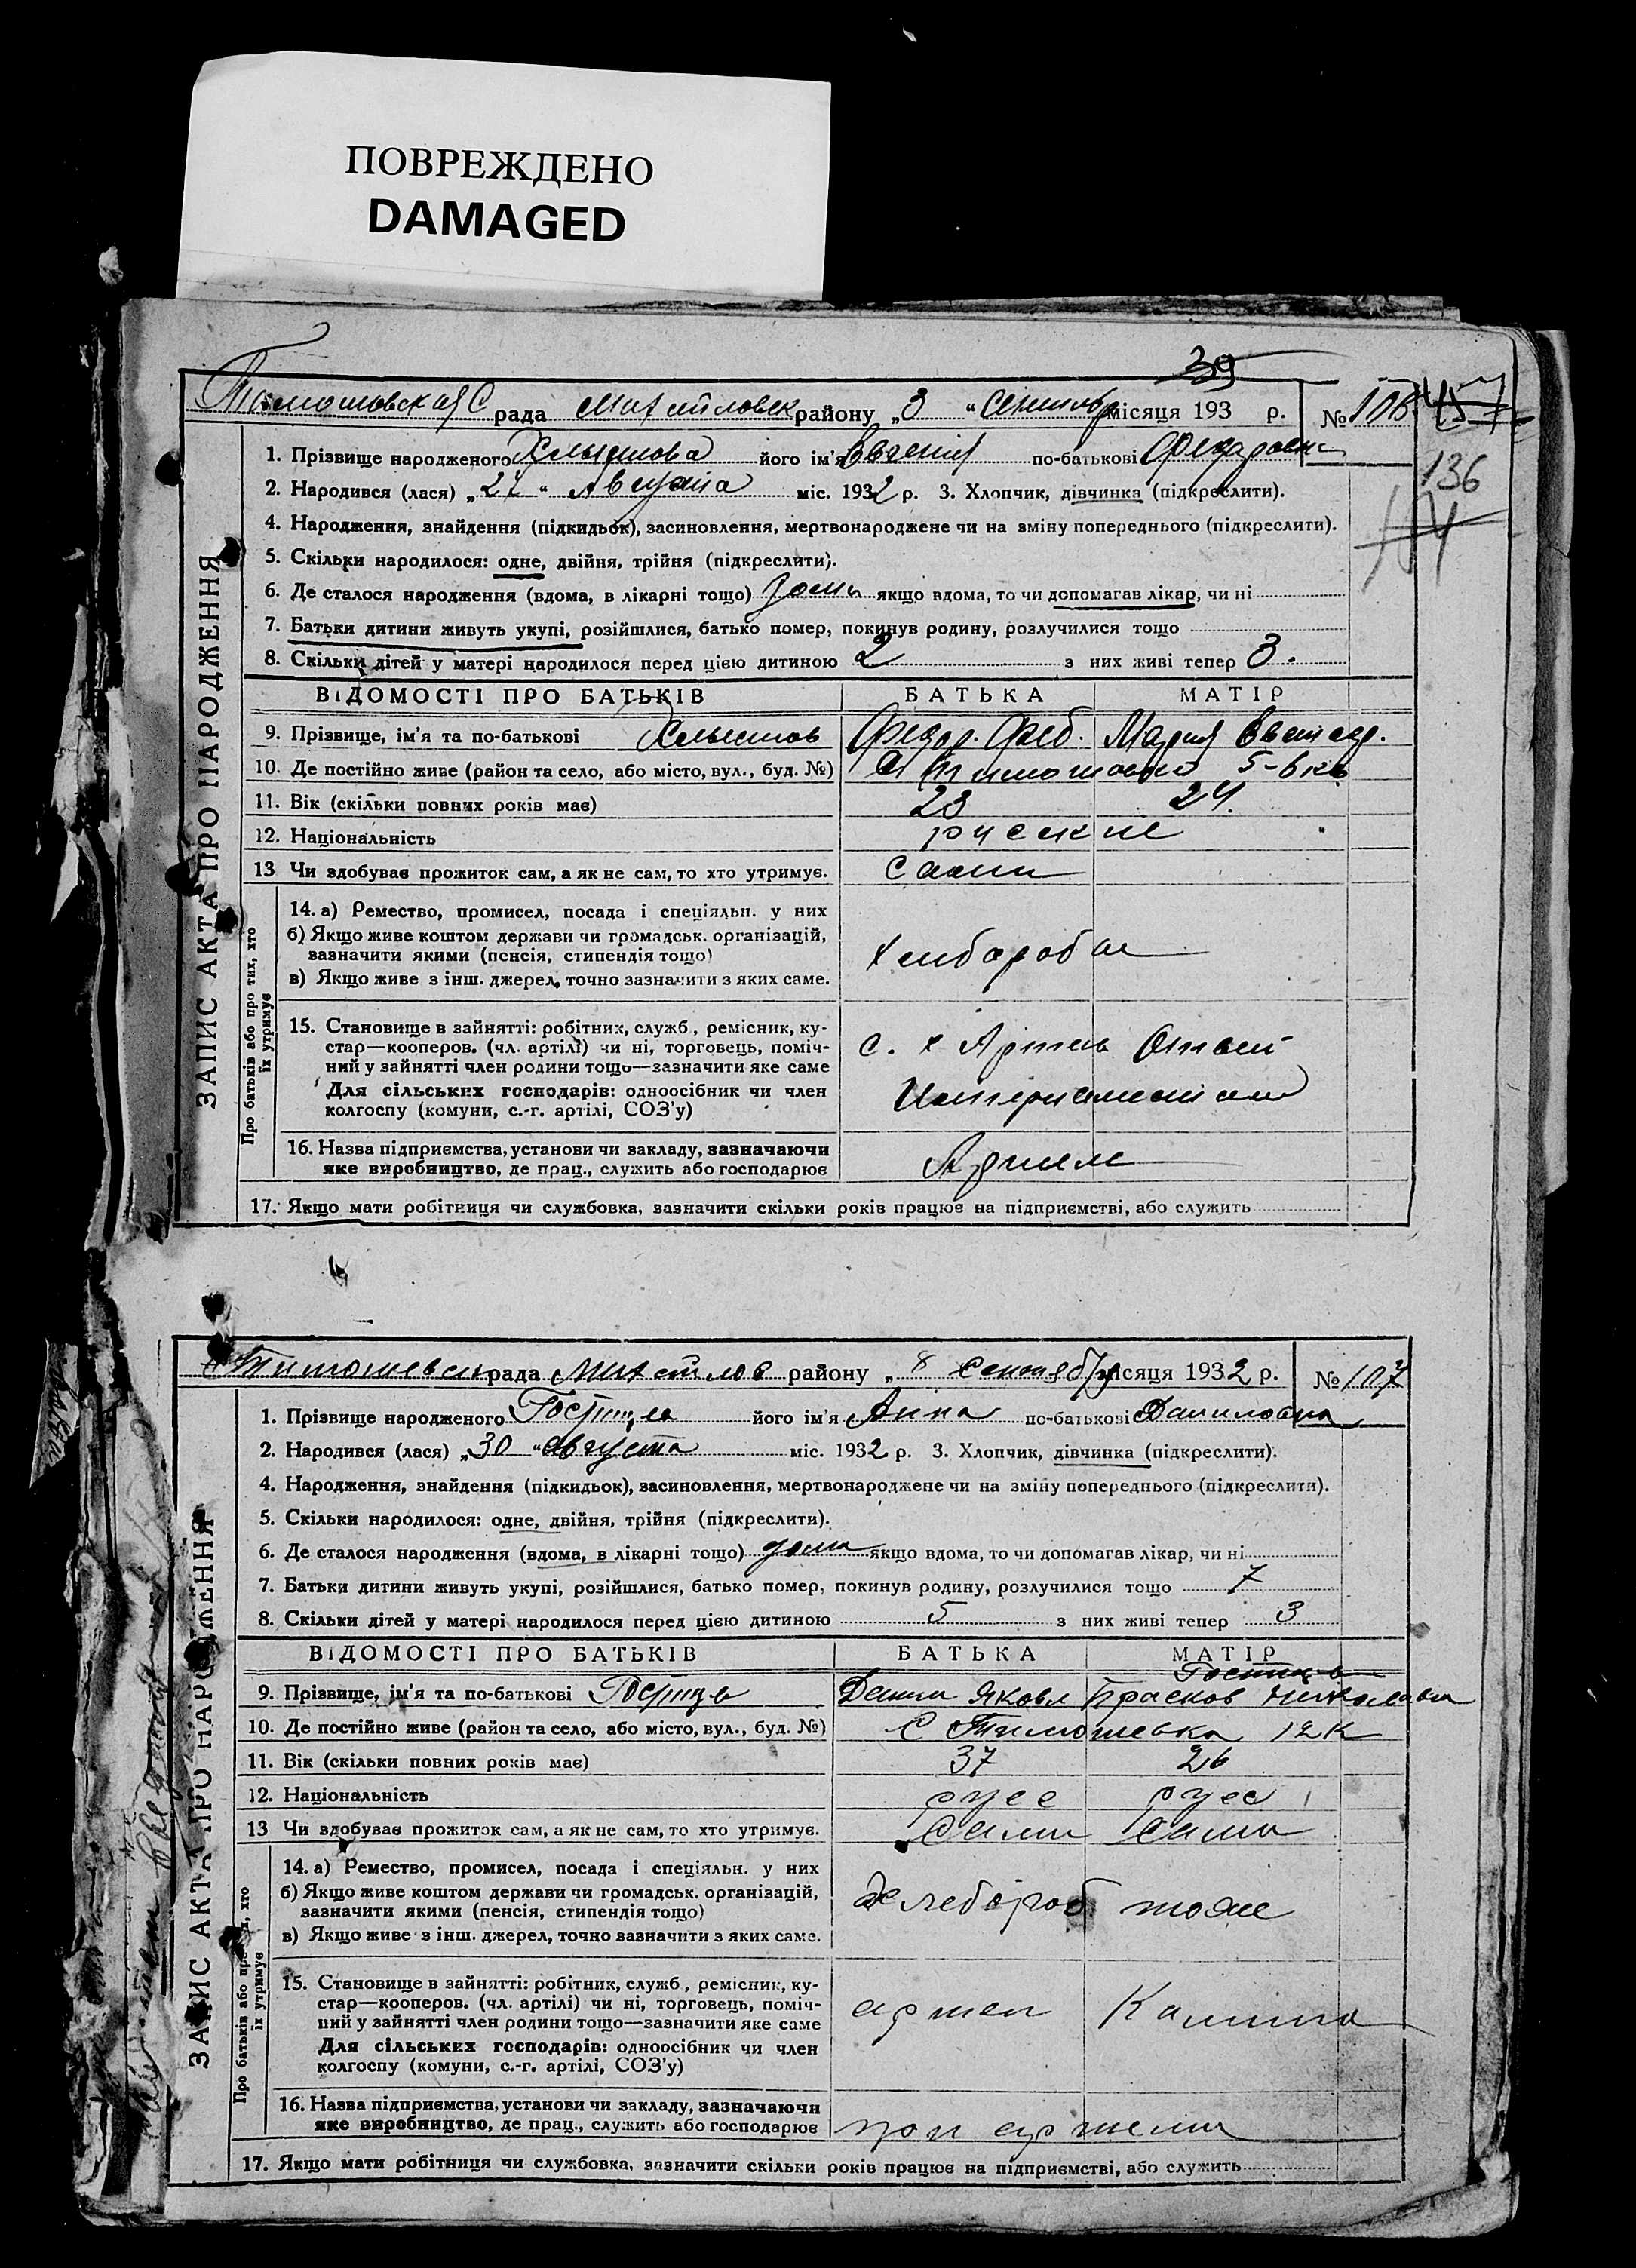 ПОВРЕЖДЕНО
DAMAGED
39
рада района „3 “ місяця 193 р. № 106
1. Прізвище народженого його ім'я Евгения по-батькові
136
2. Народився (лася) „27“ Августа міс. 1932 р. 3. Хлопчик, дівчинка (підкреслити).
4. Народження, знайдення (підкидьок), засиновлення, мертвонароджене чи на зміну попереднього (підкреслити).
5. Скільки народилося: одне, двійня, трійня (підкреслити).
6. Де сталося народження (вдома, в лікарні тощо) дома якщо вдома, то чи допомагав лікар, чи ні
7. Батьки дитини живуть укупі, розійшлися, батько помер, покинув родину, розлучилися тощо
8. Скільки дітей у матері народилося перед цією дитиною 2 з них живі тепер 3.
ВІДОМОСТІ ПРО БАТЬКІВ БАТЬКА МАТІР
9. Прізвище, ім'я та по-батькові Федор. Мария
10. Де постійно живе (район та село, або місто, вул., буд. №) 5-
11. Вік (скільки повних років має) 23 24.
12. Національність русские
13 Чи здобуває прожиток сам, а як не сам, то хто утримує. сами
14. а) Ремество, промисел, посада і спеціяльн. у них
б) Якщо живе коштом держави чи громадськ. організацій,
зазначити якими (пенсія, стипендія тощо)
в) Якщо живе з інш. джерел, точно зазначити з яких саме.
15. Становище в зайнятті: робітник, служб., ремісник, ку-
стар—кооперов. (чл. артілі) чи ні, торговець, поміч-
ний у зайнятті член родини тощо—зазначити яке саме
Для сільських господарів: одноосібник чи член
колгоспу (комуни, с.-г. артілі, СОЗ'у)
с. х Артель
16. Назва підприємства, установи чи закладу, зазначаючи
яке виробництво, де прац., служить або господарює
17. Якщо мати робітниця чи службовка, зазначити скільки років працює на підприємстві, або служить
ЗАПИС АКТА ПРО НАРОДЖЕННЯ
Про батьків або про тих, хто
їх утримує
рада району „8 сентября місяця 1932 р. № 107
1. Прізвище народженого його ім'я Анна по-батькові Даниловна
2. Народився (лася) „30 “ августа міс. 1932 р. 3. Хлопчик, дівчинка (підкреслити).
4. Народження, знайдення (підкидьок), засиновлення, мертвонароджене чи на зміну попереднього (підкреслити).
5. Скільки народилося: одне, двійня, трійня (підкреслити).
6. Де сталося народження (вдома, в лікарні тощо) дома якщо вдома, то чи допомагав лікар, чи ні
7. Батьки дитини живуть укупі, розійшлися, батько помер, покинув родину, розлучилися тощо 7
8. Скільки дітей у матері народилося перед цією дитиною 5 з них живі тепер 3
ВІДОМОСТІ ПРО БАТЬКІВ БАТЬКА МАТІР
9. Прізвище, ім'я та по-батькові Данил Яковл Прасков Николаевн
10. Де постійно живе (район та село, або місто, вул., буд. №) С Тимошевка 12 К
11. Вік (скільки повних років має) 37 26
12. Національність русс русс
13 Чи здобуває прожиток сам, а як не сам, то хто утримує. Сами Сами
14. а) Ремество, промисел, посада і спеціяльн. у них
б) Якщо живе коштом держави чи громадськ. організацій,
зазначити якими (пенсія, стипендія тощо)
в) Якщо живе з інш. джерел, точно зазначити з яких саме.
хлебороб тоже
15. Становище в зайнятті: робітник, служб., ремісник, ку-
стар—кооперов. (чл. артілі) чи ні, торговець, поміч-
ний у зайнятті член родини тощо—зазначити яке саме
Для сільських господарів: одноосібник чи член
колгоспу (комуни, с.-г. артілі, СОЗ'у)
артел
16. Назва підприємства, установи чи закладу, зазначаючи
яке виробництво, де прац., служить або господарює
при артели
17. Якщо мати робітниця чи службовка, зазначити скільки років працює на підприємстві, або служить
ЗАПИС АКТА ПРО НАРОДЖЕННЯ
Про батьків або про тих, хто
їх утримує